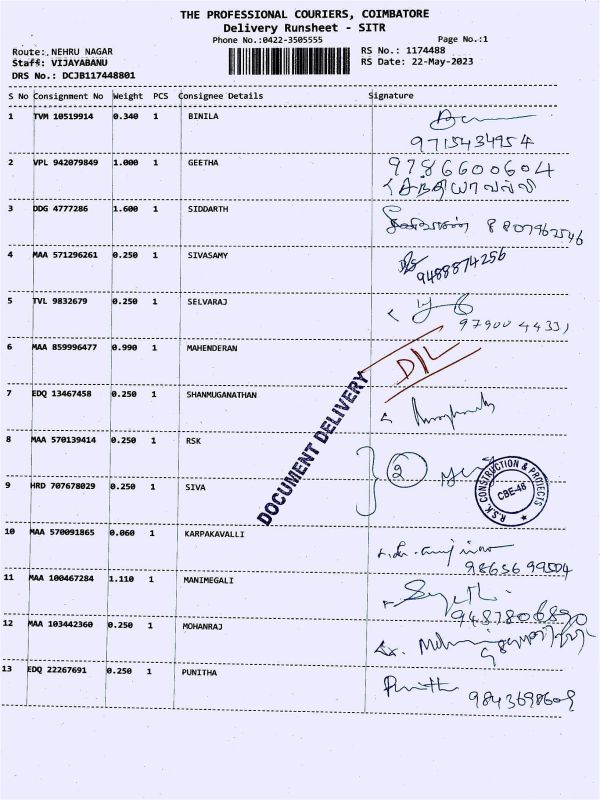 THE PROFESSIONAL COURIERS, COIMBATORE
Delivery Runsheet - SITR
Phone No.:0422-3505555 Page No.:1
Route: NEHRU NAGAR RS No.: 1174488
Staff: VIJAYABANU RS Date: 22-May-2023
DRS No.: DCJB117448801
S No Consignment No Weight PCS Consignee Details Signature
1 TVM 10519914 0.340 1 BINILA
9715434954
2 VPL 942079849 1.000 1 GEETHA 9786600604
3 DDG 4777286 1.600 1 SIDDARTH 8807962546
4 MAA 571296261 0.250 1 SIVASAMY 9488874256
5 TVL 9832679 0.250 1 SELVARAJ
9790044331
6 MAA 859996477 0.990 1 MAHENDERAN D/L
7 EDQ 13467458 0.250 1 SHANMUGANATHAN
DOCUMENT DELIVERY
8 MAA 570139414 0.250 1 RSK
2
R.S.K CONSTRUCTION & PROJECTS
CBE-48
9 HRD 707678029 0.250 1 SIVA
10 MAA 570091865 0.060 1 KARPAKAVALLI
9865699504
11 MAA 100467284 1.110 1 MANIMEGALI
9487806890
12 MAA 103442360 0.250 1 MOHANRAJ
13 EDQ 22267691 0.250 1 PUNITHA Punitha
9843698609